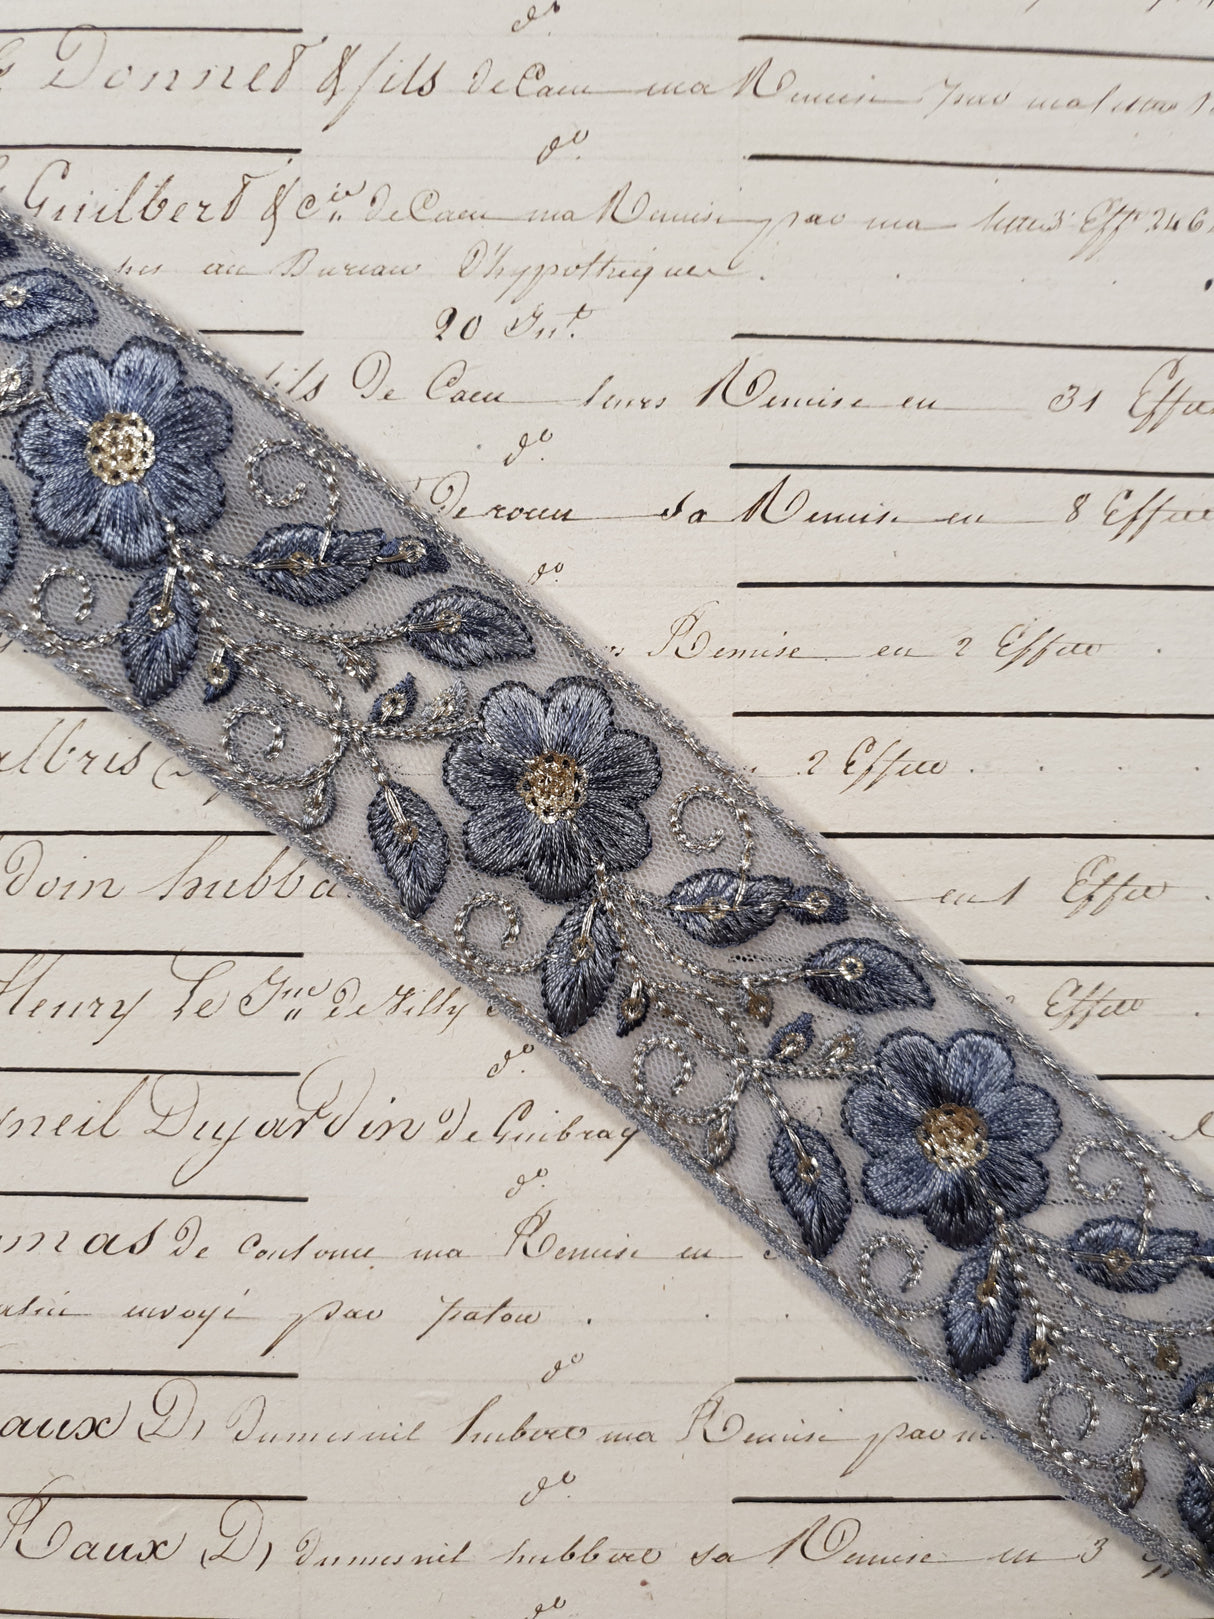 do.
Donnet & fils de Caen ma Remise par ma lettre
do.
Guilbert & Cie de Caen ma Remise par ma lettre Effts 246
au Bureau D'hypothèques.
20 Jnt.
fils De Caen leurs Remise en 31 Effets
do.
De rouen sa Remise en 8 Effets
do.
Remise en 2 Effets.
2 Effets.
doin hubba en 1 Effet.
henry Le Jne de Tilly
Effets.
do.
neil Dujardin de Guibray
do.
mas de coutance ma Remise en
envoyé par patou.
do.
aux D, dumesnil hubert ma Remise par m
do.
Raux D, dumesnil hubbert sa Remise en 3
do.